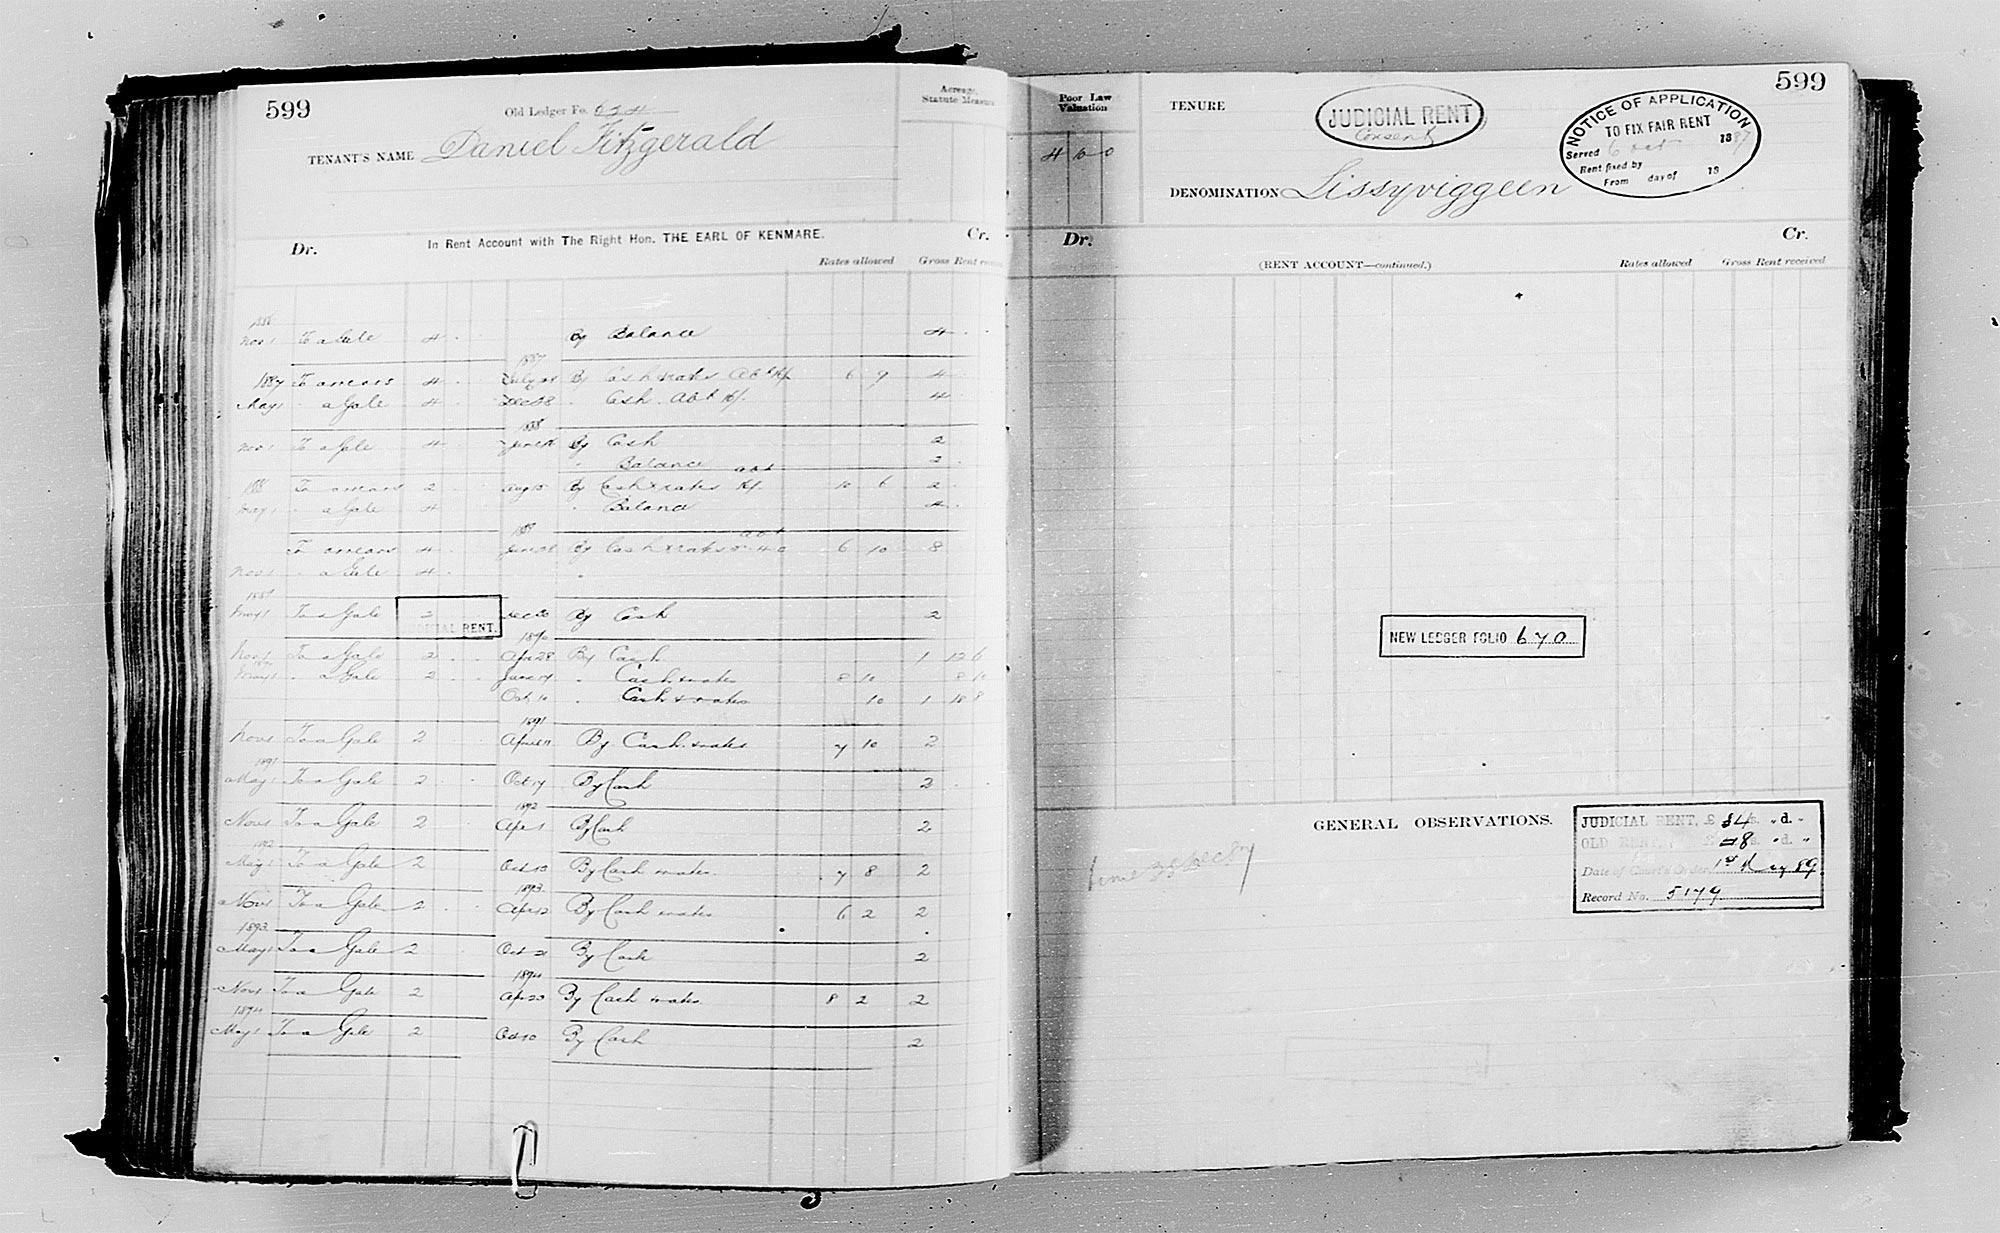 599
Old Ledger Fo. 624
TENANT'S NAME Daniel Fitzgerald
Acreage, Statute Measure
Dr. In Rent Account with The Right Hon. THE EARL OF KENMARE. Cr.
Rates allowed Gross Rent
1886
Nov 1 To a Gale 4 By Balance 4
1887
1887 To arrears 4 By Cash & rates Abt 6 9 4
May 1 " a Gale 4 Dec 28 " Cash Abt 4
1888
Nov 1 To a Gale 4 June By Cash 2
" Balance 2
1888 To arrears 2 Aug 15 By Cash & rates abt 10 6 2
May 1 " a Gale 4 " Balance 4
1889
To arrears 4 By Cash & rates abt 6 10 8
Nov 1 " a Gale 4
1889
May 1 To a Gale 2 Dec 20 By Cash 2
RENT.
1890
Nov 1 To a Gale 2 Apr 28 By Cash 1 12 6
May 1 " a Gale 2 June 17 " Cash & rates 8 10 8 10
Oct 10 " Cash & rates 10 1 18 8
1891
Nov 1 To a Gale 2 April 11 By Cash & rates 7 10 2
1891
May 1 To a Gale 2 Oct 17 By Cash 2
1892
Nov 1 To a Gale 2 Apr 1 By Cash 2
1892
May 1 To a Gale 2 Oct 13 By Cash & rates 7 8 2
1893
Nov 1 To a Gale 2 Apr 12 By Cash & rates 6 2 2
1893
May 1 To a Gale 2 Oct 21 By Cash 2
1894
Nov 1 To a Gale 2 Apr 23 By Cash & rates 8 2 2
1894
May 1 To a Gale 2 Oct 10 By Cash 2
599
Poor Law Valuation
4 10 0
TENURE
JUDICIAL RENT
Consent
NOTICE OF APPLICATION
TO FIX FAIR RENT
Served 6 Oct 1887
Rent fixed by
From day of 18
DENOMINATION Lissyviggeen
Dr. Cr.
(RENT ACCOUNT—continued.) Rates allowed Gross Rent received
NEW LEDGER FOLIO 670
GENERAL OBSERVATIONS.
JUDICIAL RENT, £ 4 s. " d. "
OLD RENT, 8 s. " d. "
Date of Court's Order 1st May 89
Record No. 5179